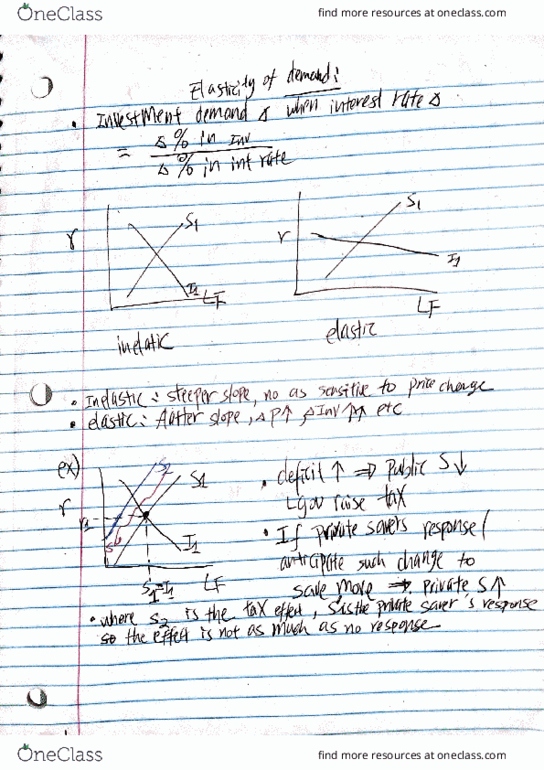 OneClass
find more resources at oneclass.com
Elasticity of demand:
• Investment demand Δ when interest rate Δ
= Δ% in Inv
Δ% in int rate
r
S1
I1
LF
inelatic
r
S1
I1
LF
elastic
• Inelastic : steeper slope, no as sensitive to price change
• elastic : flatter slope, ΔP↑ ΔInv ↑↑ etc
ex)
r
r1
S2
S1
I1
S1=I1
LF
• deficit ↑ ⇒ public S ↓
↳gov raise tax
• If private savers response /
anticipate such change to
save more ⇒ private S↑
• where S2 is the tax effect, S is the private saver's response
so the effect is not as much as no response
OneClass
find more resources at oneclass.com